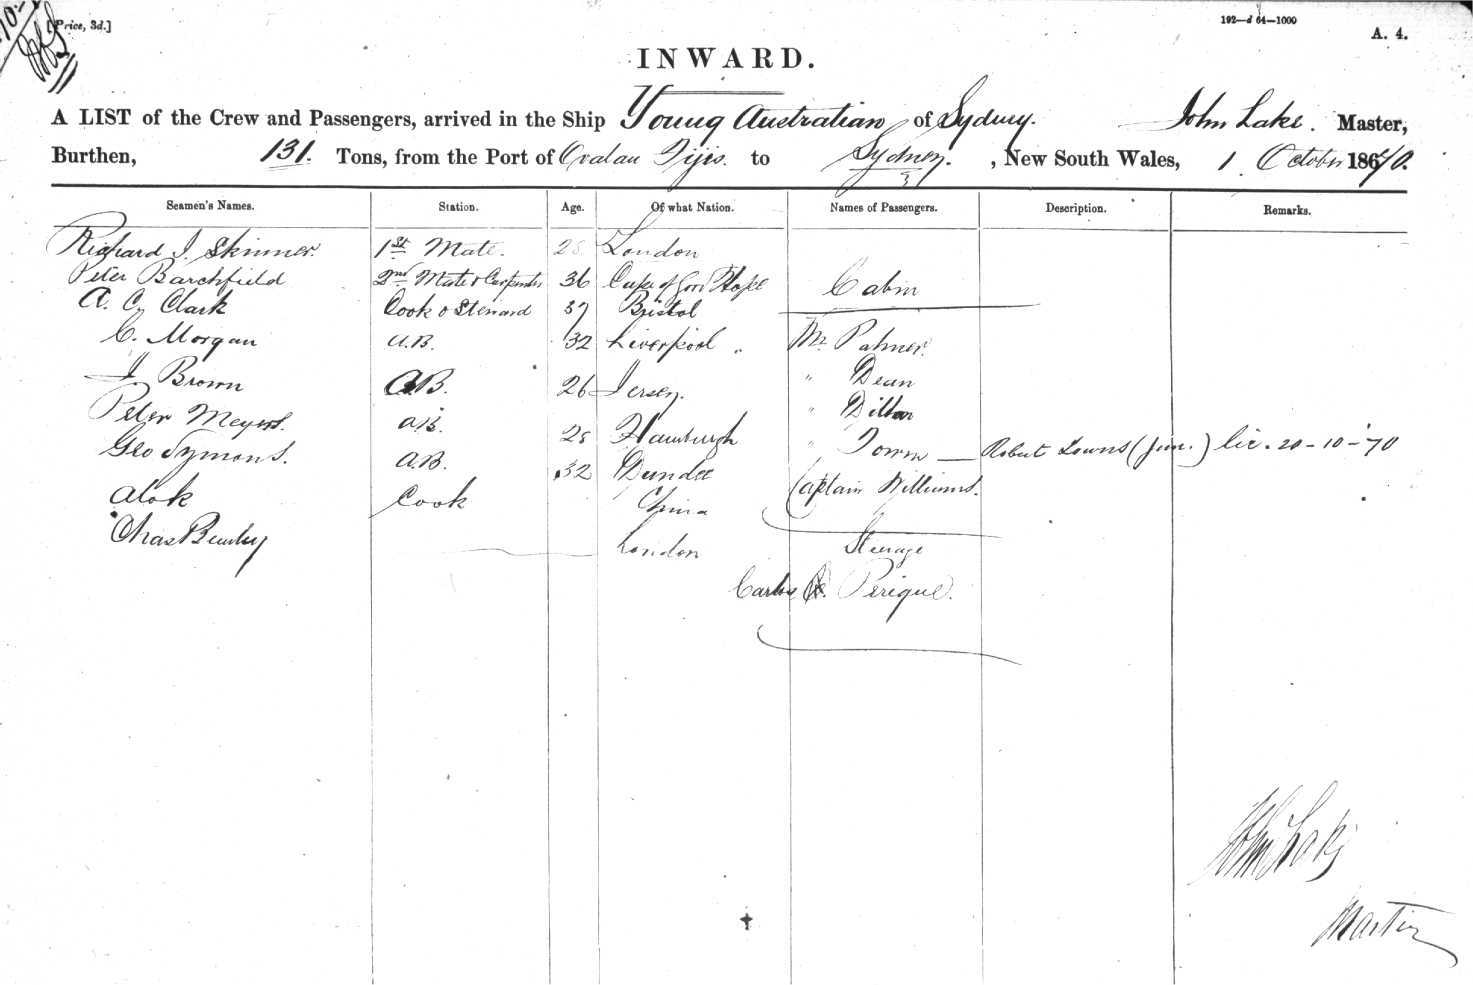 [Price, 3d.]
192—d 64—1000
A. 4.
INWARD.
A LIST of the Crew and Passengers, arrived in the Ship Young Australian of Sydney. John Lake. Master,
Burthen, 131. Tons, from the Port of Ovalau Fijis. to Sydney. , New South Wales, 1 October 1870.
Seamen's Names. Station. Age. Of what Nation. Names of Passengers. Description. Remarks.
Richard J. Skinner. 1st Mate. 28 London
Peter Barchfield 2nd Mate & Carpenter 36 Cape of Good Hope Cabin
A. C. Clark Cook & Steward 37 Bristol
C. Morgan A.B. 32 Liverpool Mr Palmer.
J Brown A.B. 26 Jersey. " Dean
Peter Meyers. A.B. 28 Hamburgh "
Geo Symons. A.B. 32 Dundee " Town — Robert Towns (jun.) lic. 20-10-'70
Alok Cook China Captain Williams.
Chas London Steerage
Perique.
John Lake
Master